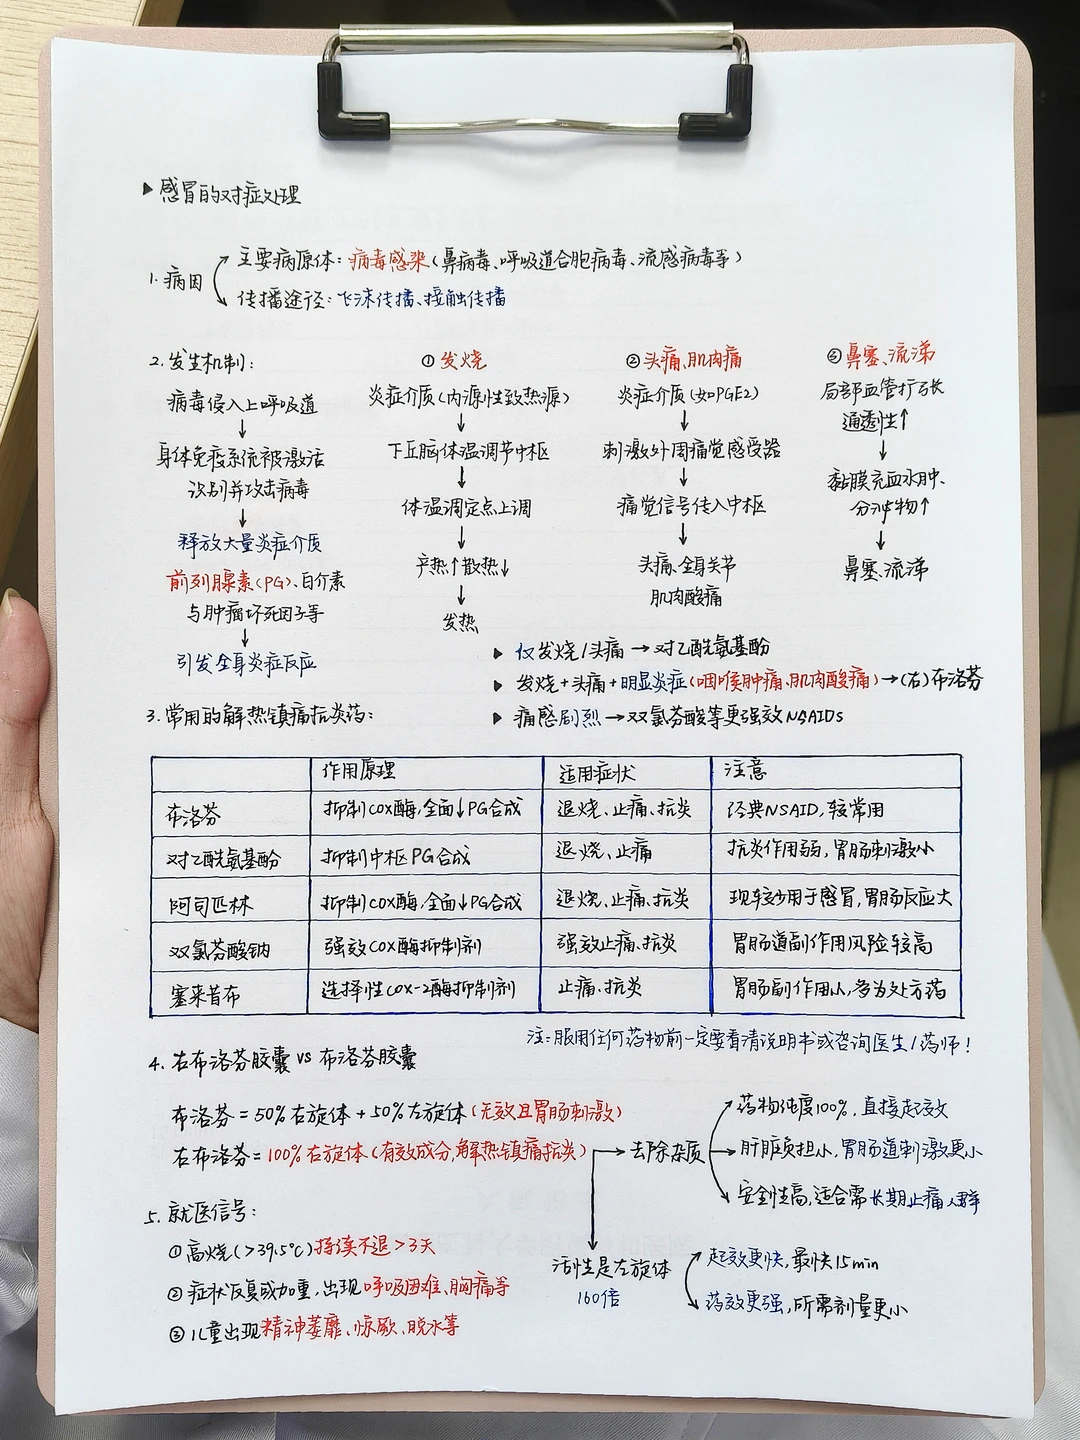 ▶ 感冒的对症处理
1. 病因
主要病原体：病毒感染（鼻病毒、呼吸道合胞病毒、流感病毒等）
传播途径：飞沫传播、接触传播
2. 发生机制：
病毒侵入上呼吸道
↓
身体免疫系统被激活
识别并攻击病毒
↓
释放大量炎症介质
前列腺素（PG）、白介素
与肿瘤坏死因子等
↓
引发全身炎症反应
① 发烧
炎症介质（内源性致热源）
↓
下丘脑体温调节中枢
↓
体温调定点上调
↓
产热↑散热↓
↓
发热
② 头痛、肌肉痛
炎症介质（如PGE2）
↓
刺激外周痛觉感受器
↓
痛觉信号传入中枢
↓
头痛、全身关节
肌肉酸痛
③ 鼻塞、流涕
局部血管扩张
通透性↑
↓
黏膜充血水肿、
分泌物↑
↓
鼻塞、流涕
▶ 仅发烧/头痛→对乙酰氨基酚
▶ 发烧+头痛+明显炎症（咽喉肿痛、肌肉酸痛）→（右）布洛芬
▶ 痛感剧烈→双氯芬酸等更强效NSAIDs
3. 常用的解热镇痛抗炎药：
作用原理 适用症状 注意
布洛芬 抑制COX酶，全面↓PG合成 退烧、止痛、抗炎 经典NSAID，较常用
对乙酰氨基酚 抑制中枢PG合成 退烧、止痛 抗炎作用弱，胃肠刺激小
阿司匹林 抑制COX酶，全面↓PG合成 退烧、止痛、抗炎 现较少用于感冒，胃肠反应大
双氯芬酸钠 强效COX酶抑制剂 强效止痛、抗炎 胃肠道副作用风险较高
塞来昔布 选择性COX-2酶抑制剂 止痛、抗炎 胃肠副作用小，多为处方药
注：服用任何药物前一定要看清说明书或咨询医生/药师！
4. 右布洛芬胶囊 vs 布洛芬胶囊
布洛芬=50%右旋体+50%左旋体（无效且胃肠刺激）
右布洛芬=100%右旋体（有效成分，解热镇痛抗炎）
→去除杂质
药物纯度100%，直接起效
肝脏负担小，胃肠道刺激更小
安全性高，适合需长期止痛人群
活性是左旋体
160倍
起效更快，最快15min
药效更强，所需剂量更小
5. 就医信号：
①高烧（>39.5℃）持续不退>3天
②症状反复或加重，出现呼吸困难、胸痛等
③儿童出现精神萎靡、惊厥、脱水等